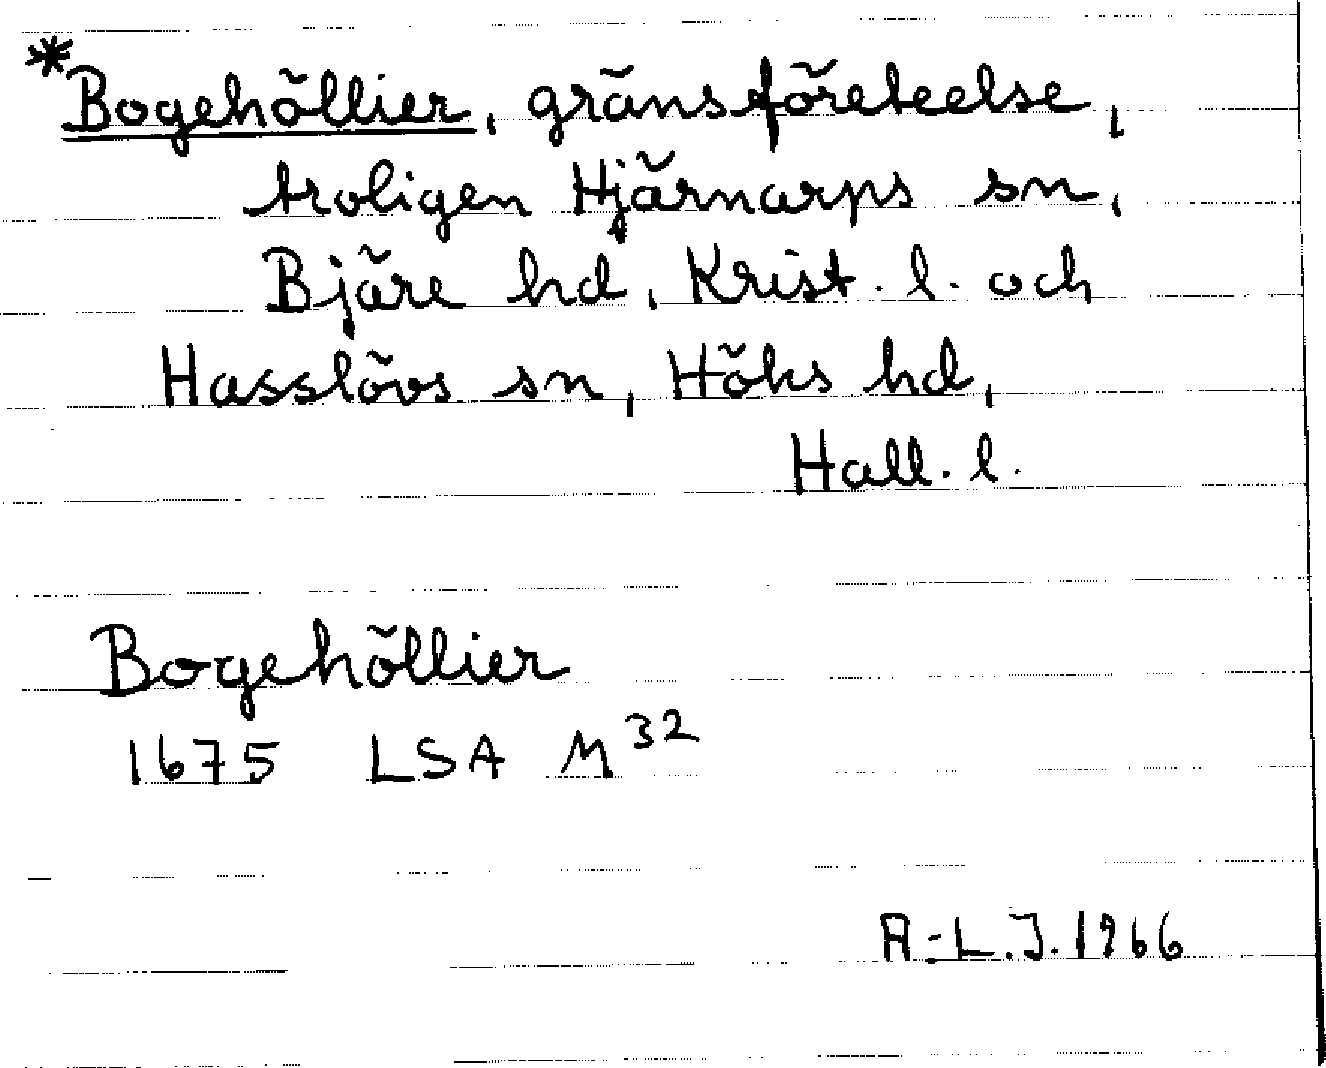 *Bogehöllier, gränsföreteelse,
troligen Hjärnarps sn,
Bjäre hd, Krist. l. och
Hasslövs sn, Höks hd,
Hall. l.
Bogehöllier
1675 LSA M³²
A-L.J. 1966